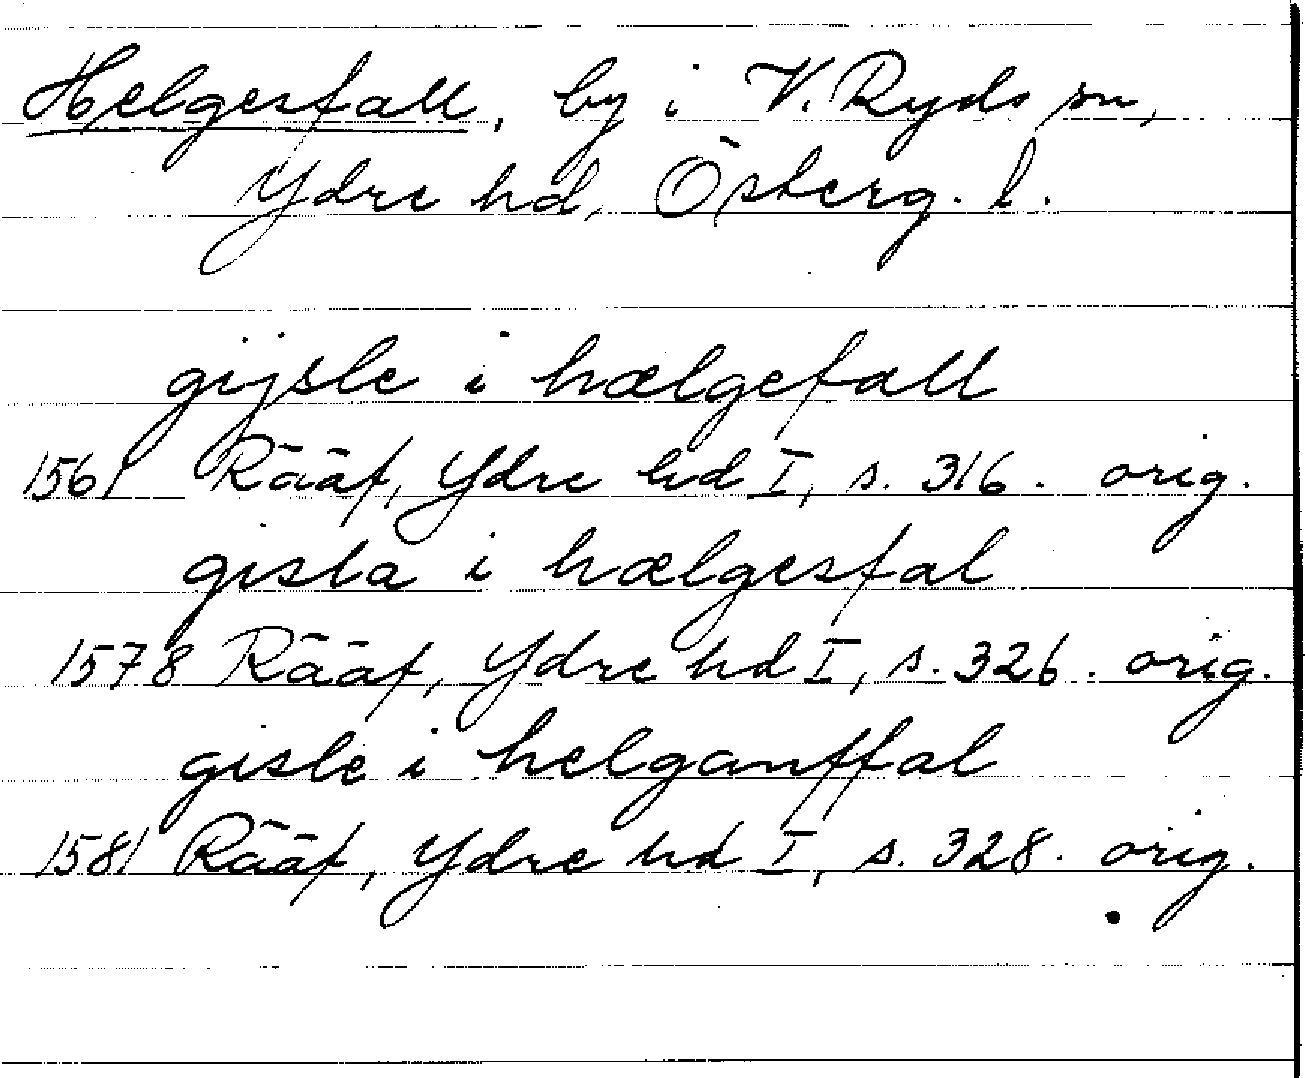 Helgesfall, by i V. Ryds sn,
Ydre hd, Österg. l.
gijsle i hælgefall
1561 Rääf, Ydre hd I, s. 316. orig.
gisla i hælgesfal
1578 Rääf, Ydre hd I, s. 326. orig.
gisle i helganffal
1581 Rääf, Ydre hd I, s. 328. orig.